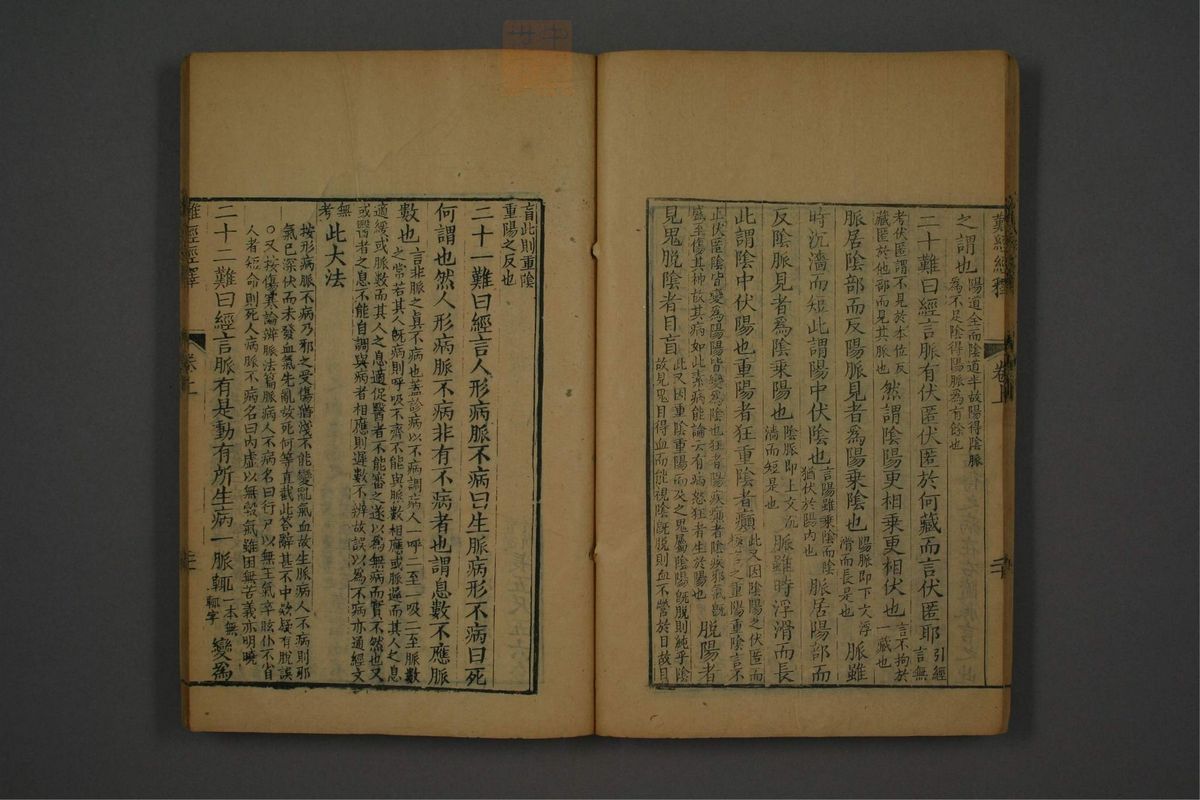 難經經釋
卷上
之謂也陽道全而陰道半故陽得陰脈
為不足陰得陽脈為有餘也
二十難曰經言脈有伏匿伏匿於何藏而言伏匿耶引經言無
考伏匿謂不見於本位反
藏匿於他部而見其脈也然謂陰陽更相乘更相伏也言不拘於
一藏也
脈居陰部而反陽脈見者為陽乘陰也陽脈即下文浮
滑而長是也脈雖
時沉濇而短此謂陽中伏陰也言陽雖乘陰而陰
猶伏於陽內也脈居陽部而
反陰脈見者為陰乘陽也陰脈即上文沉
濇而短是也脈雖時浮滑而長
此謂陰中伏陽也重陽者狂重陰者癲此又因陰陽之伏匿而
之重陽重陰言不
止伏匿陰皆變為陽陽皆變為陰也狂者陽疾癲者陰疾邪氣既
盛至傷其神故其病如此素病能論云有病怒狂者生於陽也脫陽者
見鬼脫陰者目盲此又因重陰重陽而及之鬼屬陰陽既脫則純乎陰
故見鬼目得血而能視陰既脫則血不營於目故目
盲此則重陰
重陽之反也
二十一難曰經言人形病脈不病曰生脈病形不病曰死
何謂也然人形病脈不病非有不病者也謂息數不應脈
數也言非脈之真不病也蓋診病以不病調病人一呼二至一吸二至脈數
之常若其人既病則呼吸不齊不能與脈數相應或脈遲而其人之息
適緩或脈數而其人之息適促醫者不能審之遂以為無病而實不然也又
或醫者之息不能自調與病者相應則遲數不辨故誤以為不病亦通經文
無
考此大法
按形病脈不病乃邪之受傷猶淺不能變亂氣血故生脈病人不病則邪
氣已深伏而未發血氣先亂故死何等直截此答辭甚不中欵疑有脫誤
○又按傷寒論辨脈法篇脈病人不病名曰行尸以無王氣卒眩仆不省
人者短命則死人病脈不病名曰內虛以無穀氣雖困無苦義亦明曉
二十二難曰經言脈有是動有所生病一脈輒一本無
輒字變為
難經經釋
卷上